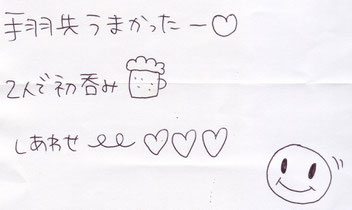 手羽先うまかったー♡
2人で初呑み
しあわせ♡♡♡